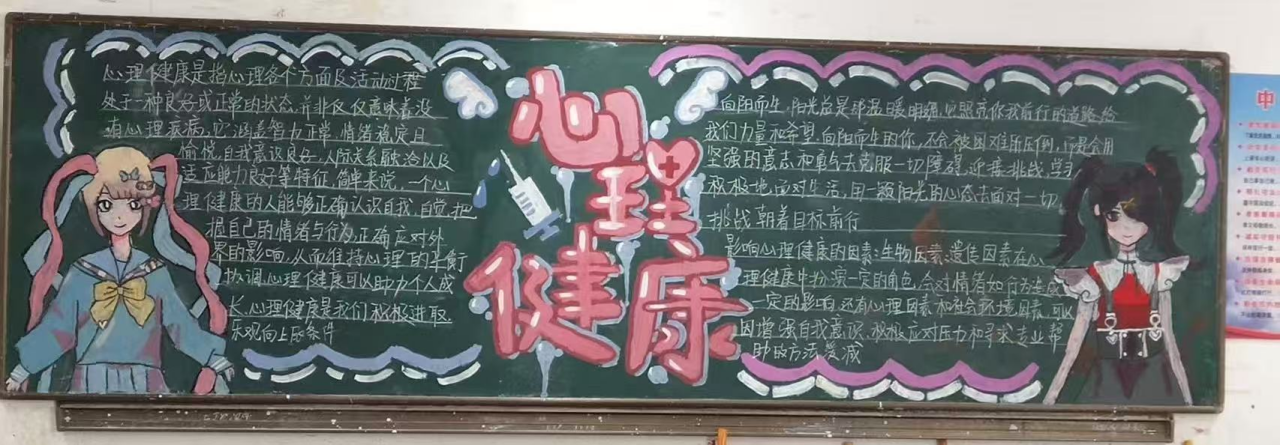 心理健康
心理健康是指心理各个方面及活动过程
处于一种良好或正常的状态,并非仅仅意味着没
有心理疾病,它涵盖智力正常,情绪稳定且
愉悦,自我意识良好,人际关系融洽以及
适应能力良好等特征,简单来说,一个心
理健康的人能够正确认识自我,自觉把
握自己的情绪与行为,正确应对外
界的影响,从而维持心理的平衡
协调,心理健康可以助力个人成
长,心理健康是我们积极进取
乐观向上的条件
向阳而生,阳光总是那温暖明媚,照亮你我前行的道路,给
我们力量和希望,向阳而生的你,不会被困难所压倒,你会用
坚强的意志和勇气去克服一切障碍,迎接挑战,学习
积极地面对生活,用一颗阳光的心态去面对一切
挑战朝着目标前行
影响心理健康的因素:生物因素:遗传因素在心
理健康中扮演一定的角色,会对情绪如行为造成
一定的影响,还有心理因素和社会环境因素,可以
因增强自我意识,积极应对压力和寻求专业帮
助的方法
中